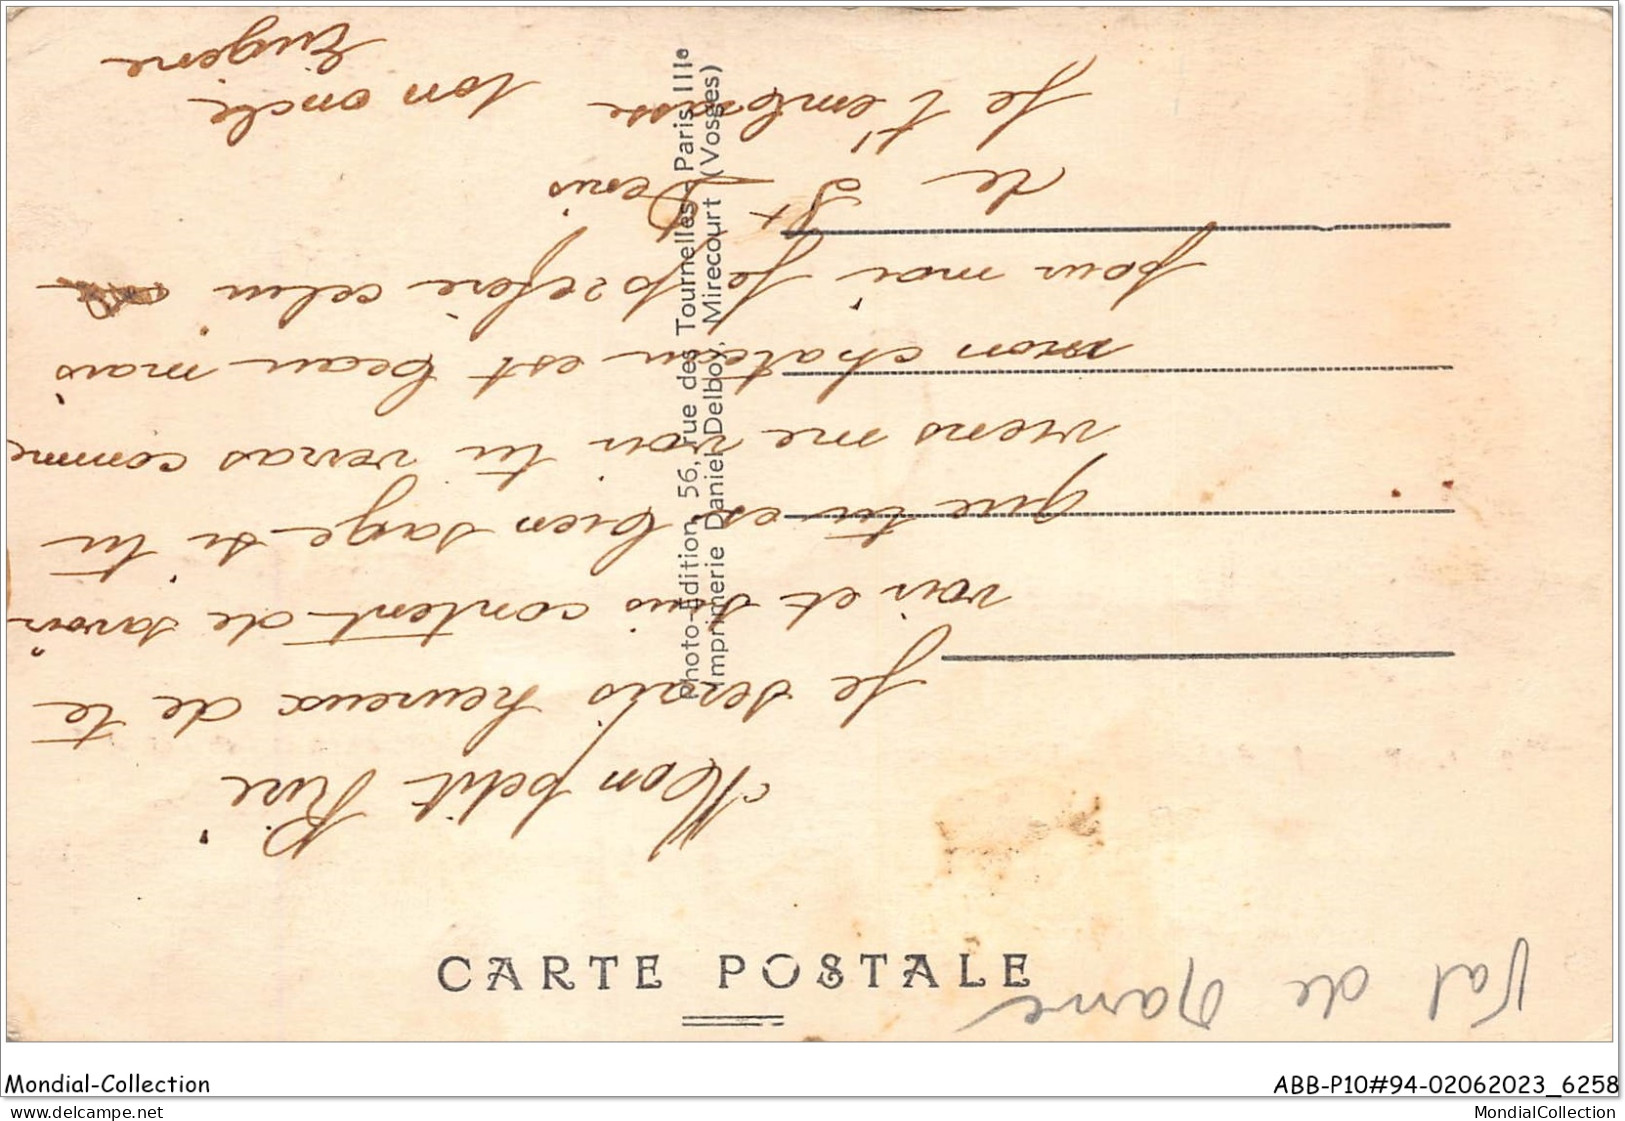 CARTE POSTALE
Val de Marne
Mon petit Riri
Je serais heureux de te
voir et suis content de savoir
que tu es bien sage si tu
viens me voir tu verras comme
mon chateau est beau mais
pour moi je préfère celui
de St Denis
Je t'embrasse ton oncle
Eugène
Photo-Edition, 56, rue des Tournelles, Paris IIIe
Imprimerie Daniel Delboy, Mirecourt (Vosges)
Mondial-Collection
ABB-P10#94-02062023_6258
www.delcampe.net
MondialCollection